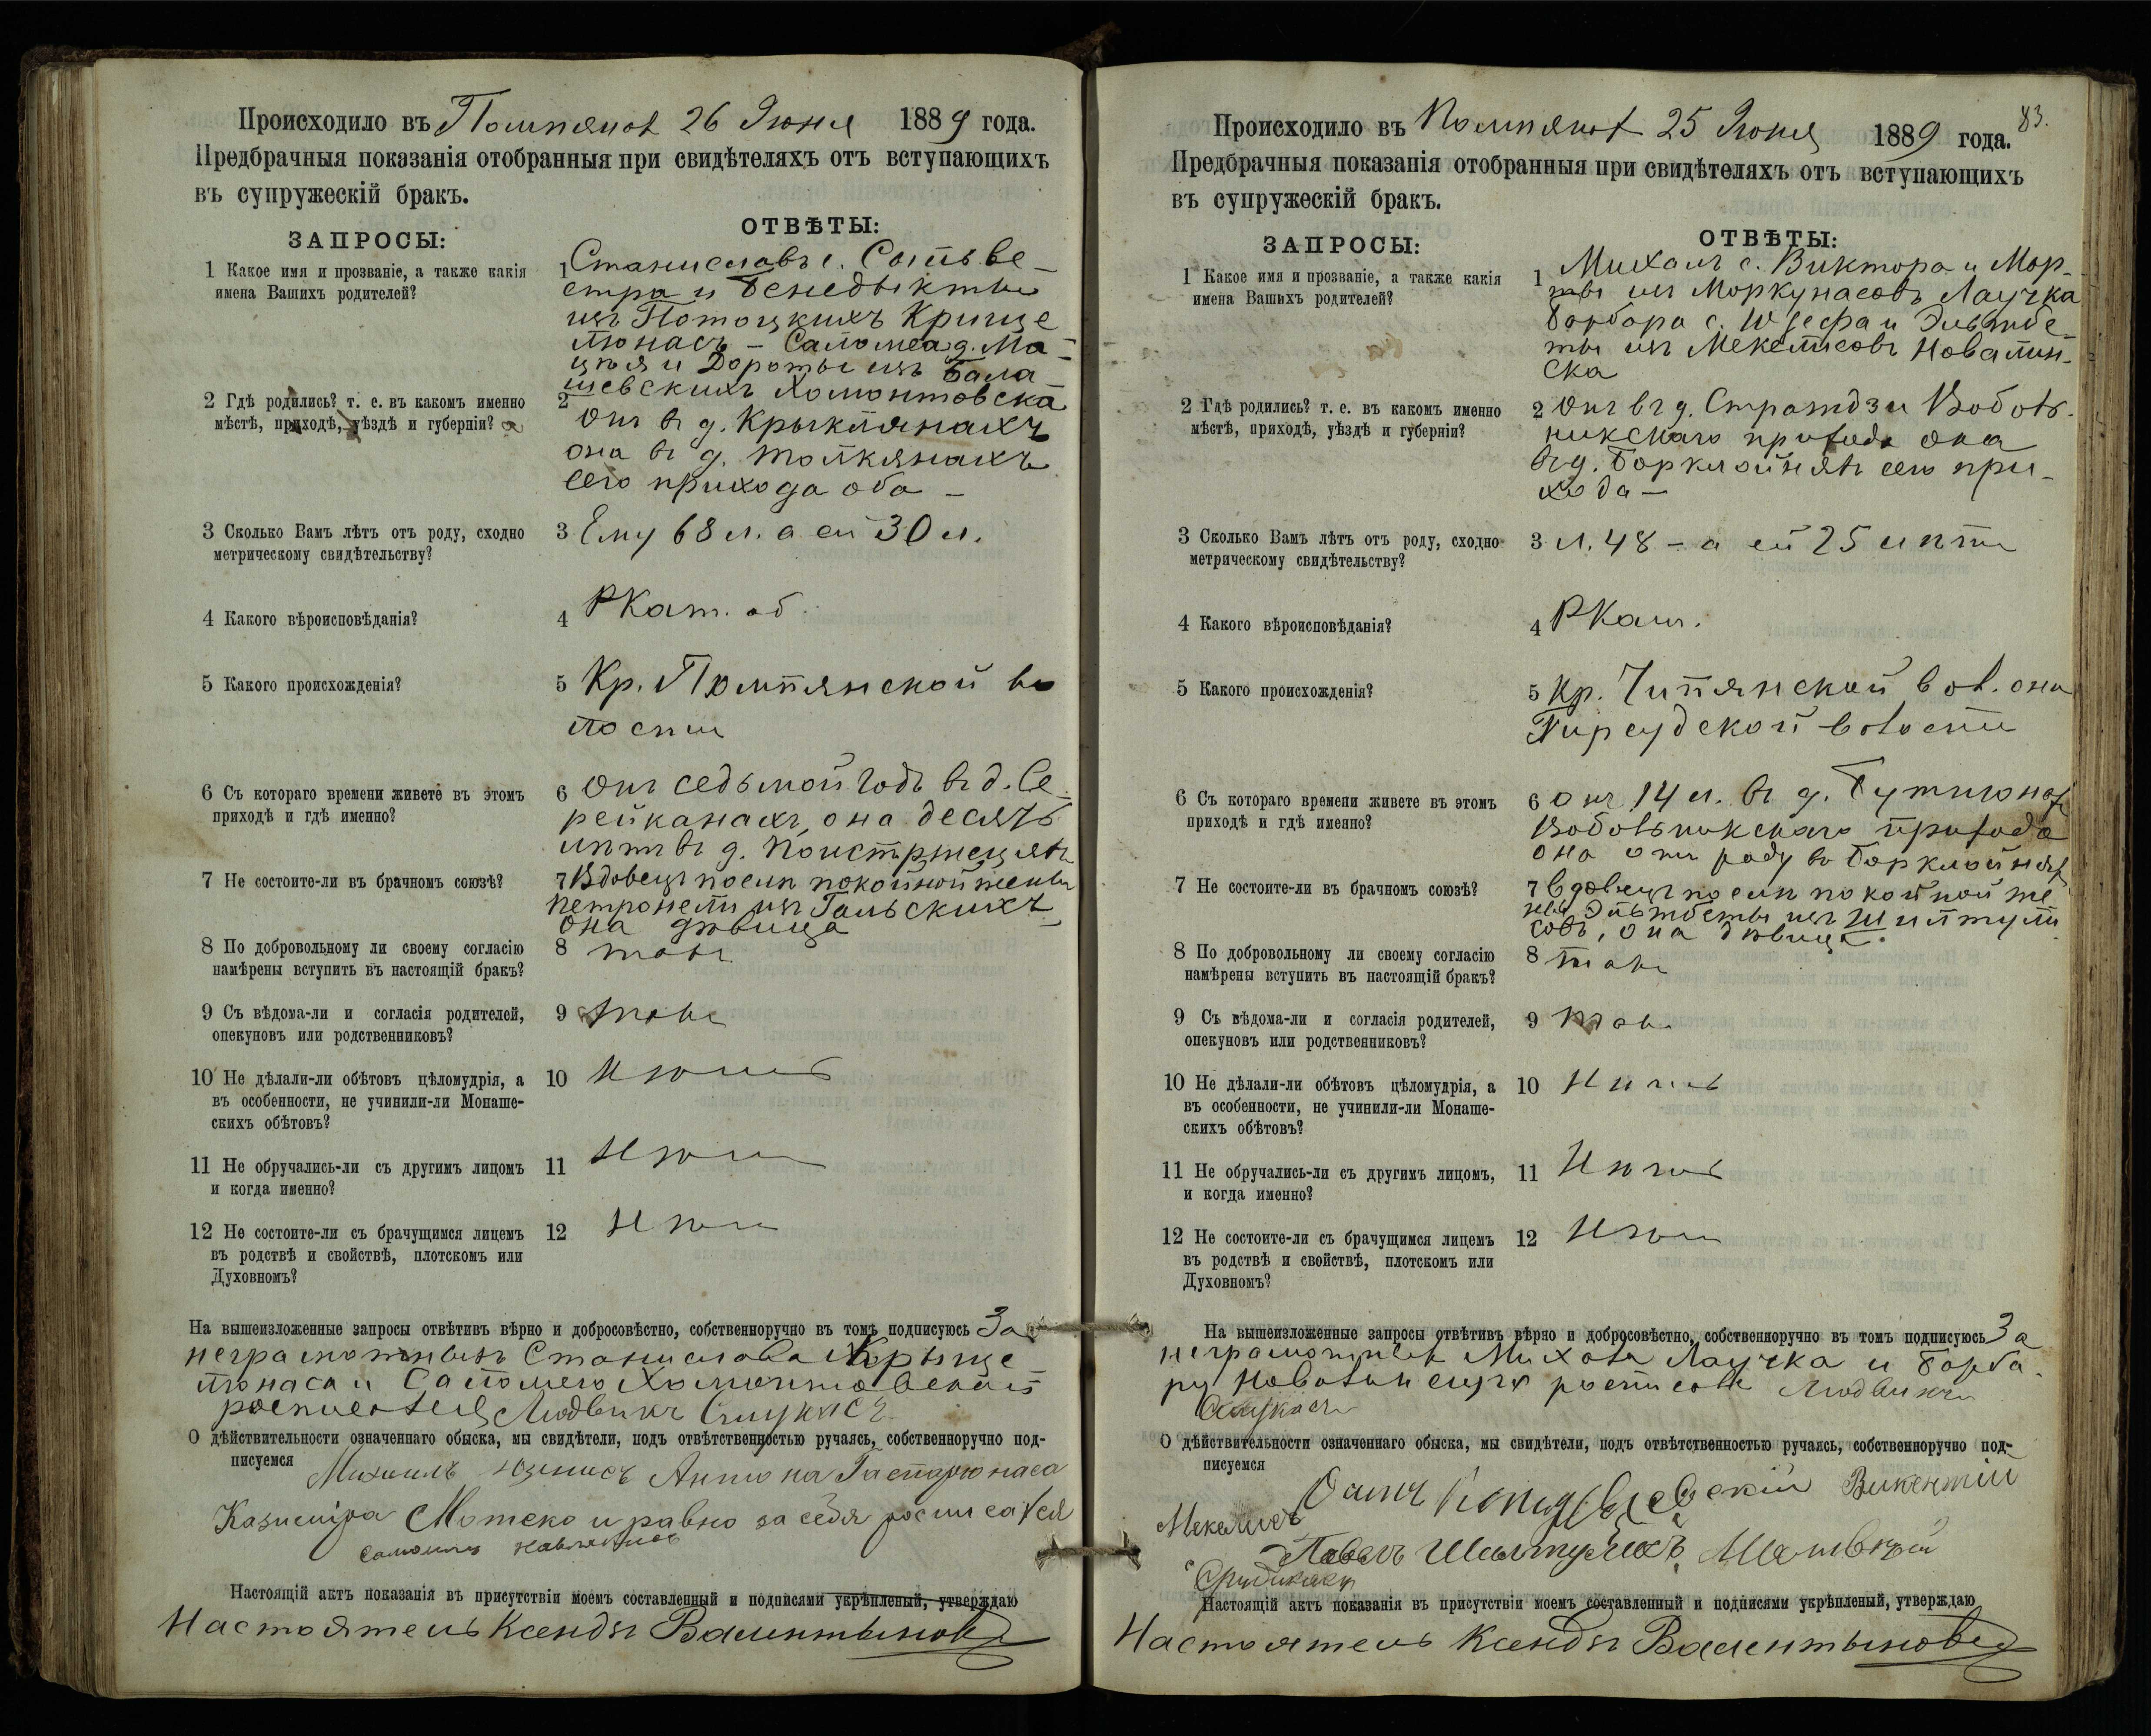 Происходило въ Помпянах 26 Іюня 1889 года.
Предбрачныя показанія отобранныя при свидѣтеляхъ отъ вступающихъ
въ супружескій бракъ.
ЗАПРОСЫ:
ОТВѢТЫ:
1 Какое имя и прозваніе, а также какія
имена Вашихъ родителей?
1 Станиславъ с. Сильве-
стра и Бенедыкты
изъ Потоцкихъ Крище
люнасъ - Саломеа д. Ма-
цѣя и Дороты изъ Бала-
шевскихъ Хомонтовска
2 Гдѣ родились? т. е. въ какомъ именно
мѣстѣ, приходѣ, уѣздѣ и губерніи?
2 Онъ въ д. Крыклянахъ
она въ д. Толкянахъ
сего прихода оба -
3 Сколько Вамъ лѣтъ отъ роду, сходно
метрическому свидѣтельству?
3 Ему 68 л. а ей 30 л.
4 Какого вѣроисповѣданія?
4 РКат. об.
5 Какого происхожденія?
5 Кр. Помпянской во
лости
6 Съ котораго времени живете въ этомъ
приходѣ и гдѣ именно?
6 Онъ седьмой годъ въ д. Се-
рейканахъ, она десять
лѣтъ въ д.
7 Не состоите-ли въ брачномъ союзѣ?
7 Вдовецъ послѣ покойной жены
Петронели изъ Гальскихъ
она дѣвица
8 По добровольному ли своему согласію
намѣрены вступить въ настоящій бракъ?
8 такъ
9 Съ вѣдома-ли и согласія родителей,
опекуновъ или родственниковъ?
9 такъ
10 Не дѣлали-ли обѣтовъ цѣломудрія, а
въ особенности, не учинили-ли Монаше-
скихъ обѣтовъ?
10 Нѣтъ
11 Не обручались-ли съ другимъ лицомъ
и когда именно?
11 Нѣтъ
12 Не состоите-ли съ брачущимся лицемъ
въ родствѣ и свойствѣ, плотскомъ или
Духовномъ?
12 Нѣтъ
На вышеизложенные запросы отвѣтивъ вѣрно и добросовѣстно, собственноручно въ томъ подписуюсь За
неграмотныхъ Станислава Крыще-
люнаса и Саломею Хомонтовскую
росписался Людвикъ
О дѣйствительности означеннаго обыска, мы свидѣтели, подъ отвѣтственностью ручаясь, собственноручно под-
писуемся Михаилъ Антона Гаспарюнаса
Казиміра Мотеко и равно за себя росписался
Настоящій актъ показанія въ присутствіи моемъ составленный и подписями укрѣпленый, утверждаю
Настоятель Ксендзъ Валентыновичъ
83.
Происходило въ Помпянах 25 Іюня 1889 года.
Предбрачныя показанія отобранныя при свидѣтеляхъ отъ вступающихъ
въ супружескій бракъ.
ЗАПРОСЫ:
ОТВѢТЫ:
1 Какое имя и прозваніе, а также какія
имена Вашихъ родителей?
1 Михаилъ с. Виктора и Мор-
ты изъ Моркунасовъ Лаучка
Барбара с. Юзефа и Эльжбе-
ты изъ Мекелисовъ Новалин-
ска
2 Гдѣ родились? т. е. въ какомъ именно
мѣстѣ, приходѣ, уѣздѣ и губерніи?
2 Онъ въ д. Вобольникскаго прихода она
въ д. Барклойняхъ сего при-
хода -
3 Сколько Вамъ лѣтъ отъ роду, сходно
метрическому свидѣтельству?
3 л. 48 - а ей 25 лѣтъ
4 Какого вѣроисповѣданія?
4 РКат.
5 Какого происхожденія?
5 Кр. Чипянской вол. она
Гирсудской волости
6 Съ котораго времени живете въ этомъ
приходѣ и гдѣ именно?
6 Онъ 14 л. въ д. Бутнюнах
Вобольникскаго прихода
она отъ роду въ Барклойнях
7 Не состоите-ли въ брачномъ союзѣ?
7 вдовецъ послѣ покойной же
ны Эльжбеты изъ Шилтули
совъ, она дѣвица.
8 По добровольному ли своему согласію
намѣрены вступить въ настоящій бракъ?
8 такъ
9 Съ вѣдома-ли и согласія родителей,
опекуновъ или родственниковъ?
9 такъ
10 Не дѣлали-ли обѣтовъ цѣломудрія, а
въ особенности, не учинили-ли Монаше-
скихъ обѣтовъ?
10 Нѣтъ
11 Не обручались-ли съ другимъ лицомъ,
и когда именно?
11 Нѣтъ
12 Не состоите-ли съ брачущимся лицемъ
въ родствѣ и свойствѣ, плотскомъ или
Духовномъ?
12 Нѣтъ
На вышеизложенные запросы отвѣтивъ вѣрно и добросовѣстно, собственноручно въ томъ подписуюсь За
неграмотных Михала Лаучка и Барба-
ру Новалинскую Людвикъ
О дѣйствительности означеннаго обыска, мы свидѣтели, подъ отвѣтственностью ручаясь, собственноручно под-
писуемся Осипъ Викентій
Мекелисъ
Павелъ Шилтулисъ
Настоящій актъ показанія въ присутствіи моемъ составленный и подписями укрѣпленый, утверждаю
Настоятель Ксендзъ Валентыновичъ